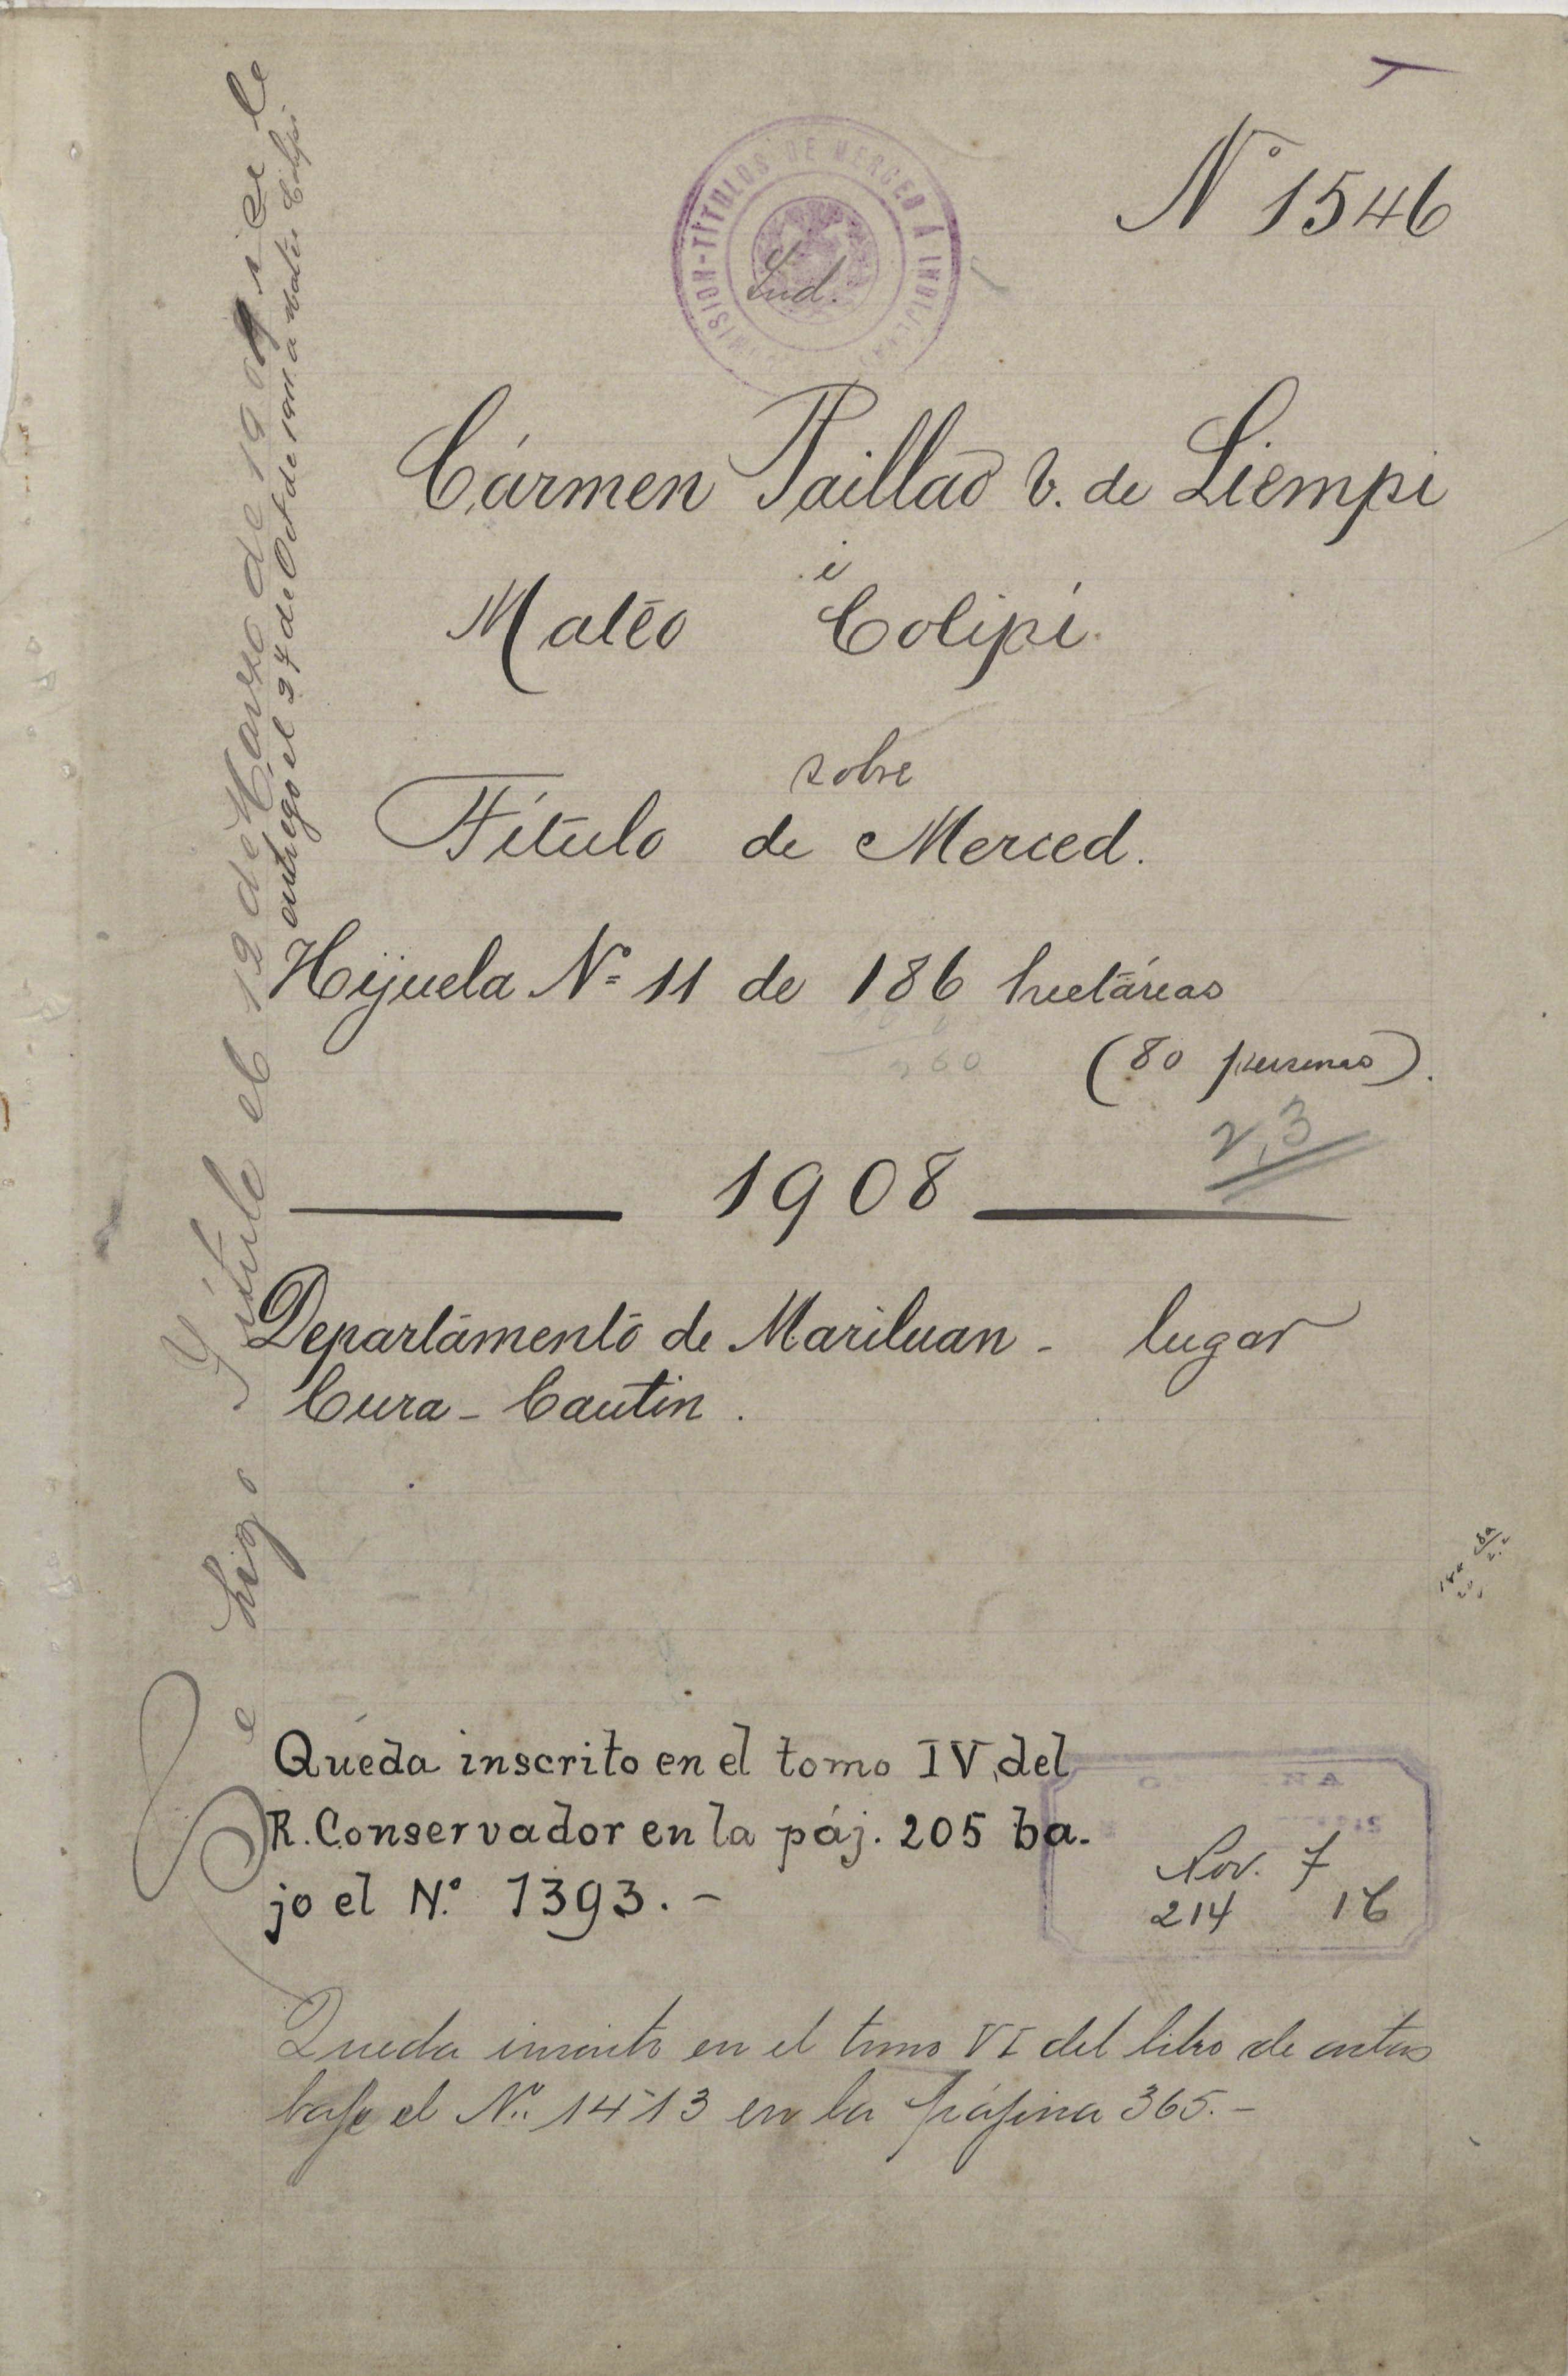 Nº 1546
COMISION-TITULOS DE MERCED A INDIJENAS
Ind.
Cármen Paillao v. de Liempi
i
Mateo Colipí
sobre
Título de Merced.
Hijuela Nº 11 de 186 hectáreas
260
(80 personas).
2,3
1908
Departamento de Mariluan - lugar
Cura - Cautin.
Queda inscrito en el tomo IV, del
R. Conservador en la páj. 205 ba-
jo el N.º 1393. -
Nov. 7
214 16
Queda inscrito en el tomo VI del libro de actas
bajo el Nº. 1413 en la pájina 365. -
Se hizo Título el 12 de Marzo de 190 i se le
entregó el 27 de Oct de 1911 a Mateo Colipi